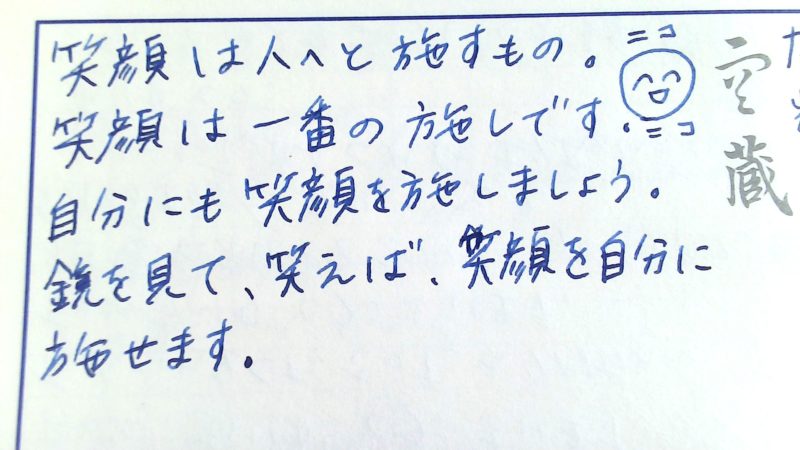 笑顔は人へと施すもの。
笑顔は一番の施しです。
自分にも笑顔を施しましょう。
鏡を見て、笑えば、笑顔を自分に
施せます。
ニコ
ニコ
空蔵